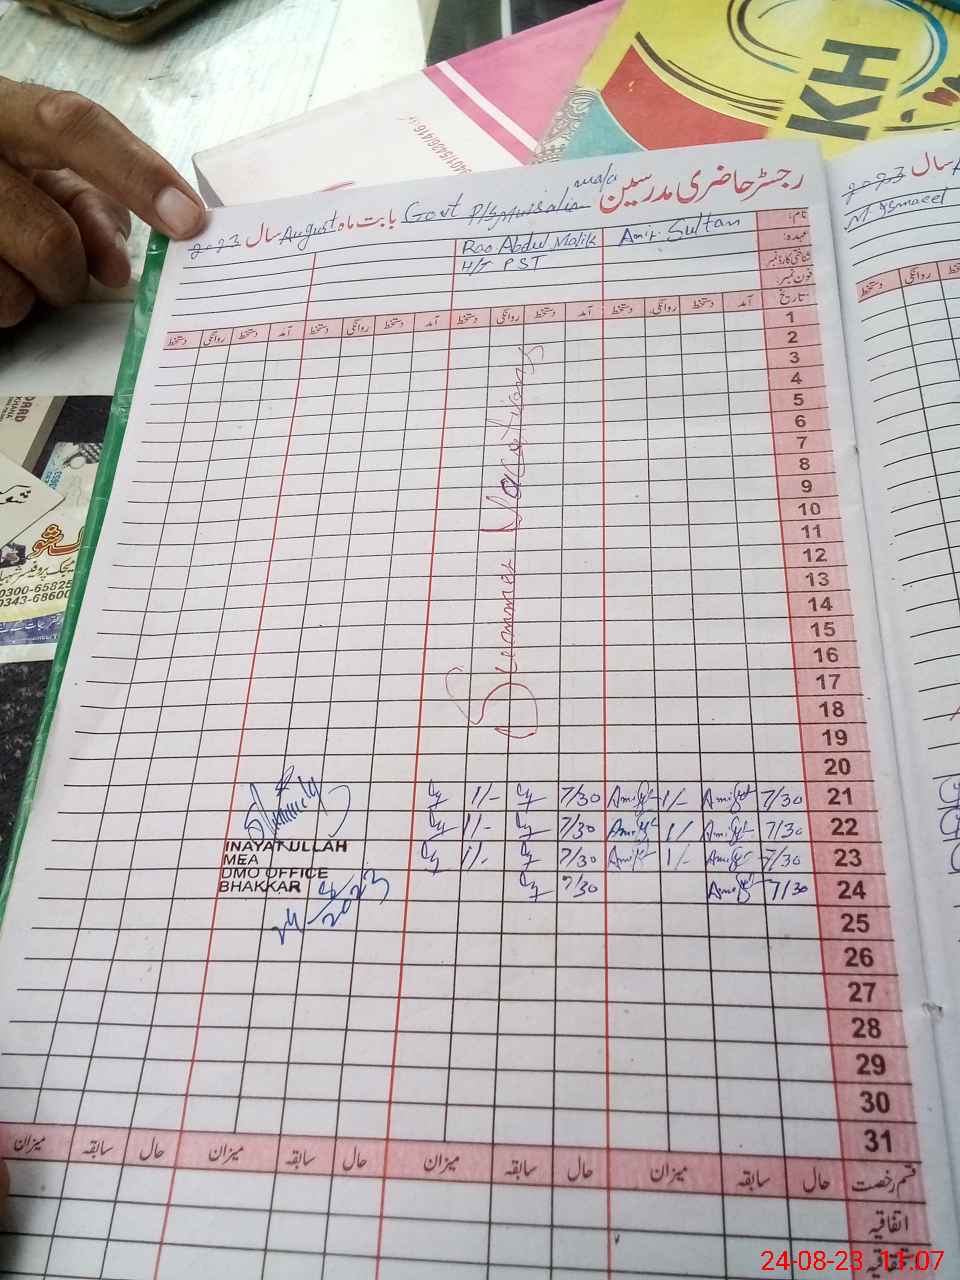 KH
0401544364164
رجسٹر حاضری مدرسین
male
بابت ماہ August سال 2023 Govt P/S
سال 2023
M. Ismaeel
نام:
Rao Abdul Malik
Amir Sultan
عہدہ:
H/T PST
شناختی کارڈ نمبر
فون نمبر
تاریخ
آمد دستخط روانگی دستخط آمد دستخط روانگی دستخط آمد دستخط روانگی دستخط آمد دستخط روانگی دستخط
دستخط روانگی
1
2
3
4
5
6
7
8
9
10
11
12
13
14
15
16
17
18
19
20
Summer Vacations
21 7/30 1/- 7/30 1/-
22 7/30 1/ 7/30 1/-
23 7/30 1/- 7/30 1/-
24 7/30 7/30
25
26
27
28
29
30
31
INAYAT ULLAH
MEA
DMO OFFICE
BHAKKAR
24-8-2023
قسم رخصت حال سابقہ میزان حال سابقہ میزان حال سابقہ میزان حال سابقہ میزان
اتفاقیہ
0300-65825
0343-68600
24-08-23 11:07